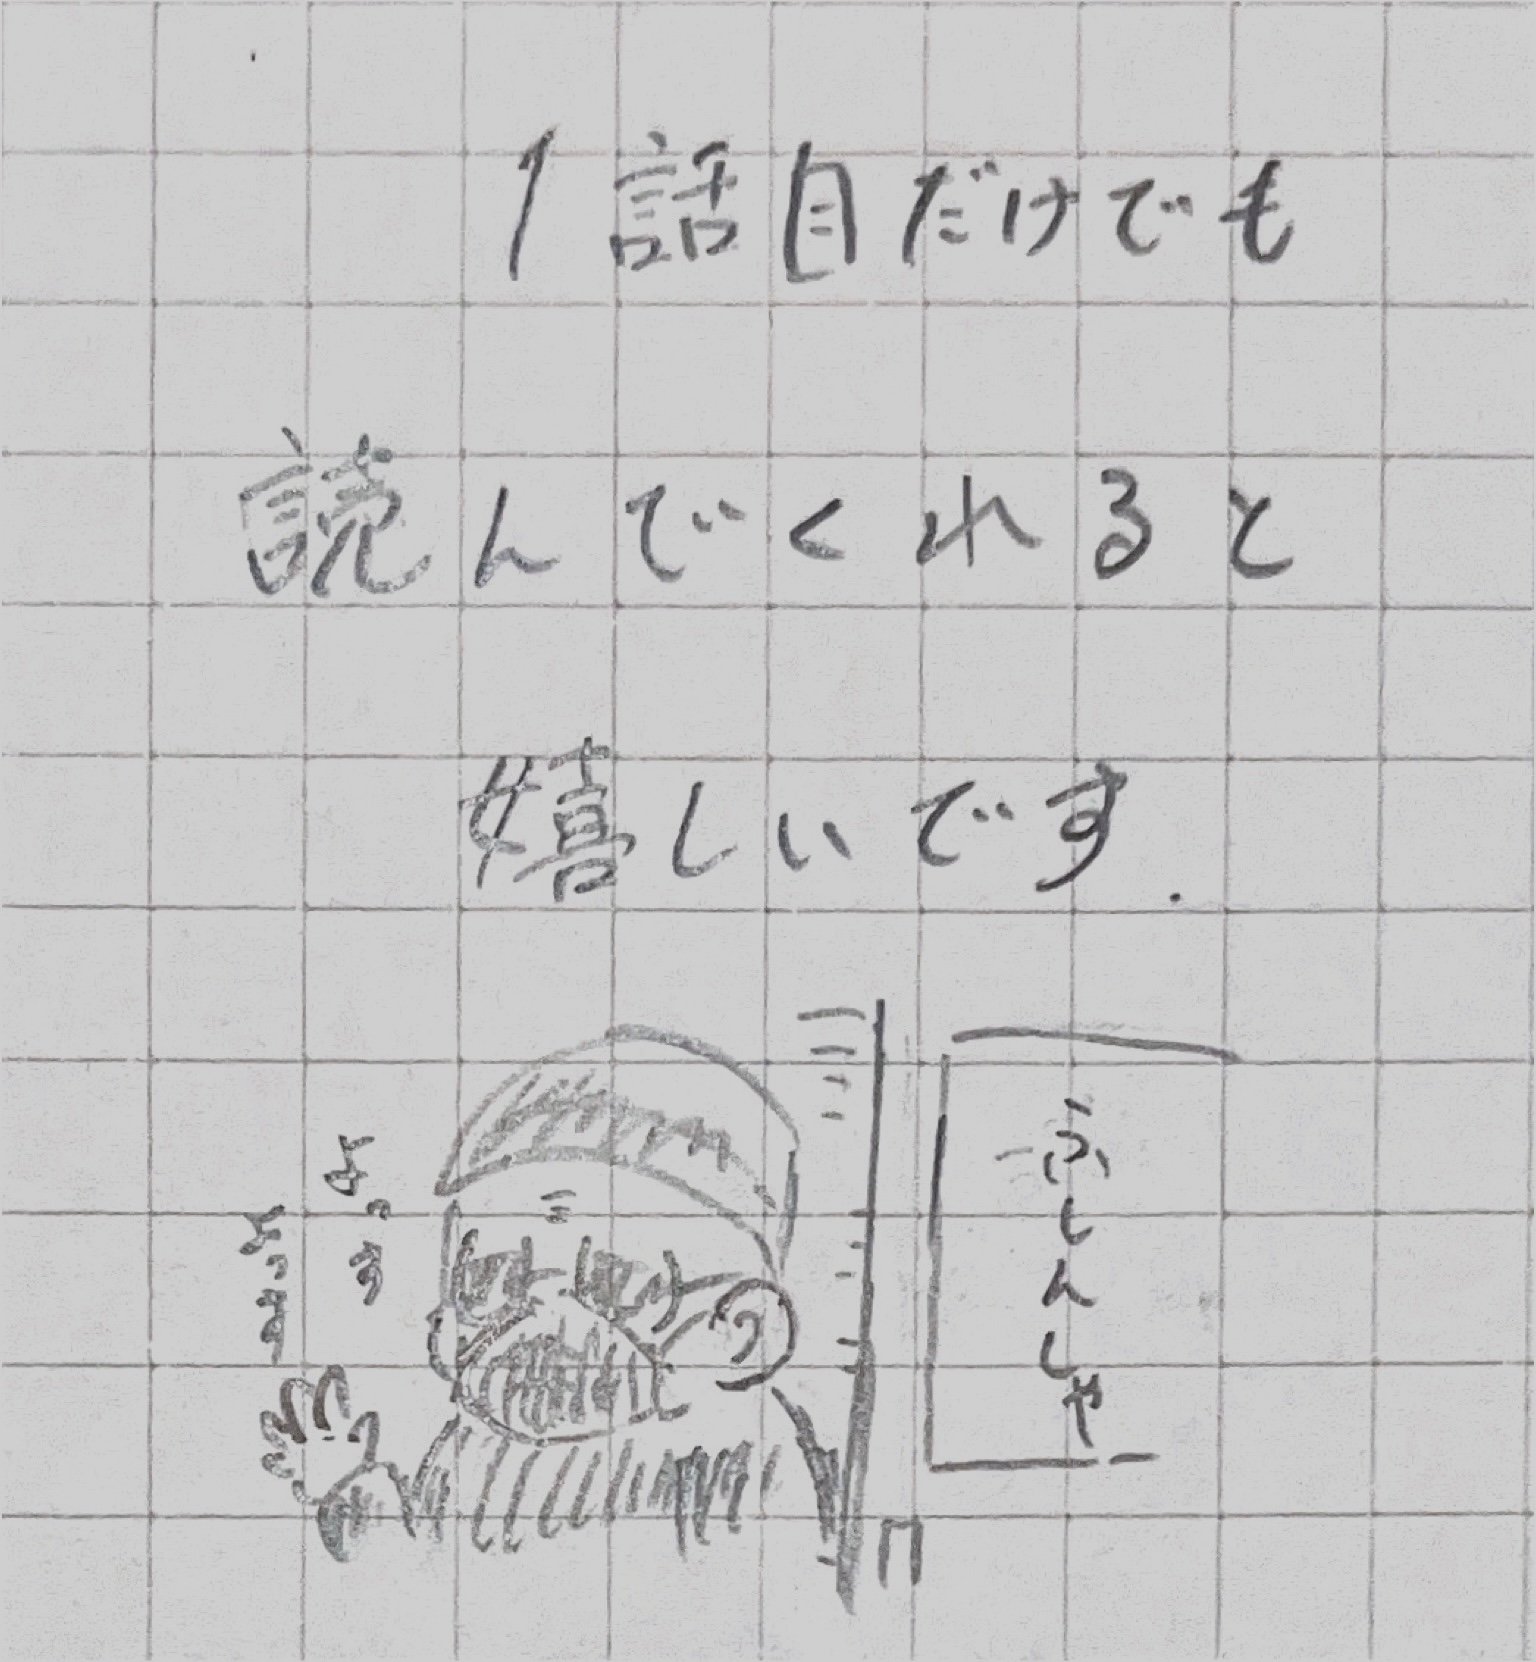 1話目だけでも
読んでくれると
嬉しいです.
ふしんしゃ